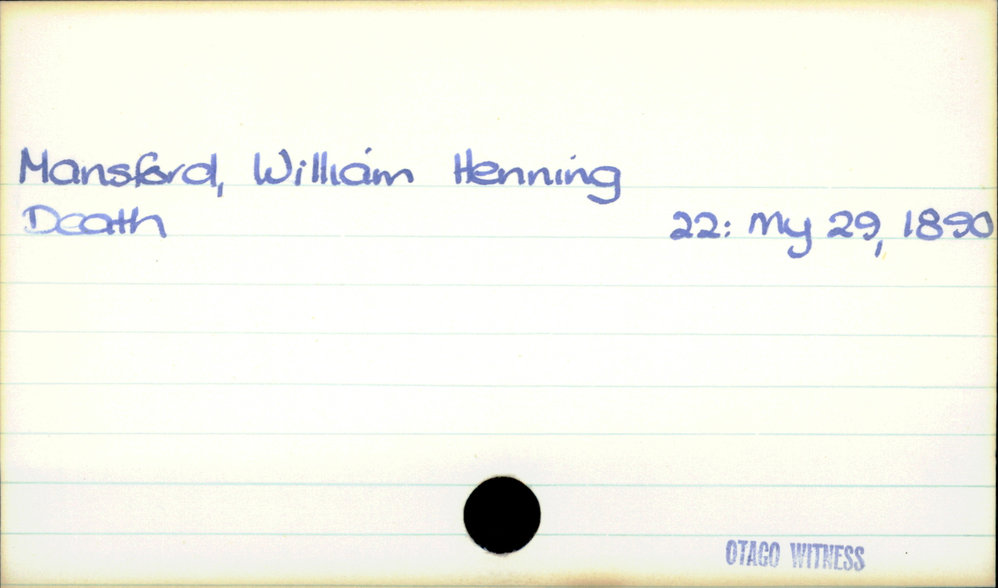 Mansford, William Henning
Death 22: My 29, 1890
OTAGO WITNESS